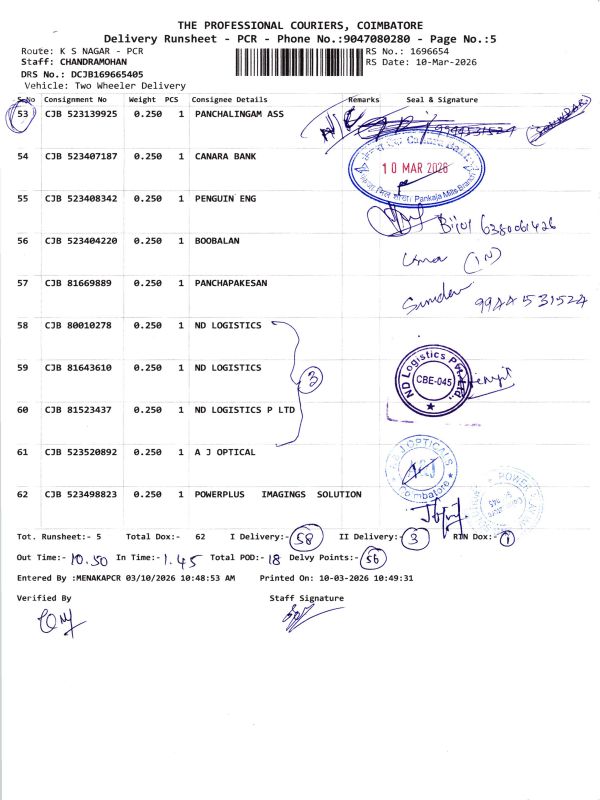 THE PROFESSIONAL COURIERS, COIMBATORE
Delivery Runsheet - PCR - Phone No.:9047080280 - Page No.:5
Route: K S NAGAR - PCR
RS No.: 1696654
Staff: CHANDRAMOHAN
RS Date: 10-Mar-2026
DRS No.: DCJB169665405
Vehicle: Two Wheeler Delivery
S.No Consignment No Weight PCS Consignee Details Remarks Seal & Signature
53 CJB 523139925 0.250 1 PANCHALINGAM ASS
9944531524
54 CJB 523407187 0.250 1 CANARA BANK
10 MAR 2026
Pankaja Mills Branch
55 CJB 523408342 0.250 1 PENGUIN ENG
Bijoy 6380061426
56 CJB 523404220 0.250 1 BOOBALAN
Uma (IN)
57 CJB 81669889 0.250 1 PANCHAPAKESAN
Sundar 9944531524
58 CJB 80010278 0.250 1 ND LOGISTICS
59 CJB 81643610 0.250 1 ND LOGISTICS
3
ND Logistics Pvt. Ltd.
CBE-045
60 CJB 81523437 0.250 1 ND LOGISTICS P LTD
61 CJB 523520892 0.250 1 A J OPTICAL
A J OPTICALS
Coimbatore
62 CJB 523498823 0.250 1 POWERPLUS IMAGINGS SOLUTION
Tot. Runsheet:- 5 Total Dox:- 62 I Delivery:- 58 II Delivery:- 3 RTN Dox:- 1
Out Time:- 10.50 In Time:- 1.45 Total POD:- 18 Delvy Points:- 56
Entered By :MENAKAPCR 03/10/2026 10:48:53 AM Printed On: 10-03-2026 10:49:31
Verified By Staff Signature